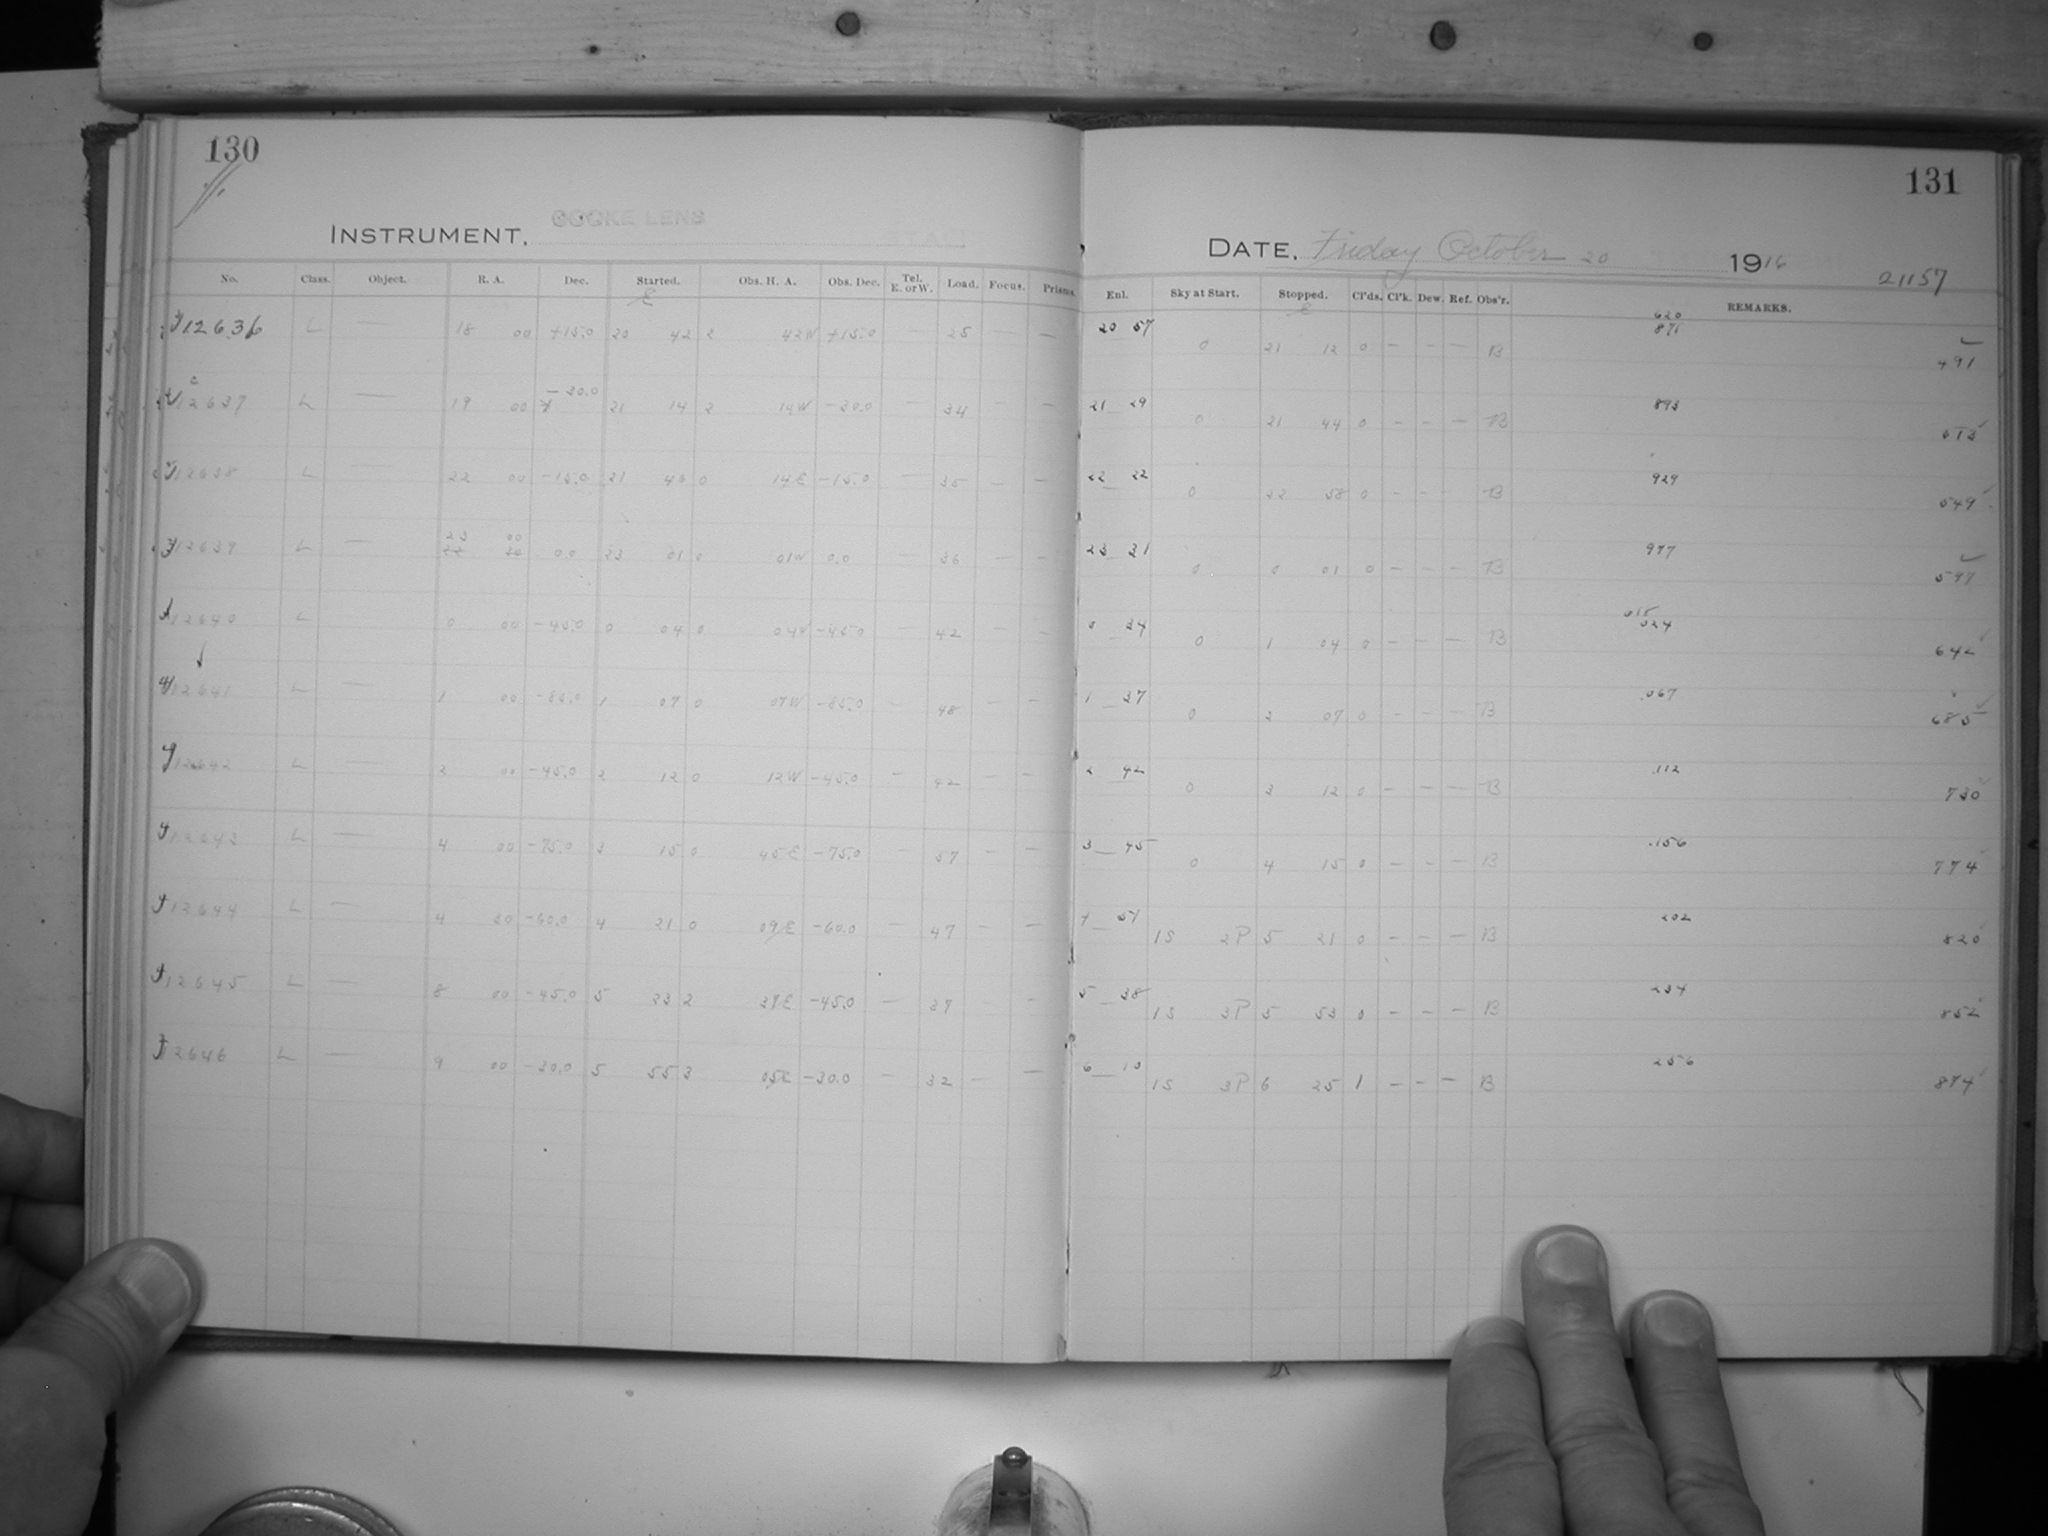 130
131
INSTRUMENT, COOKE LENS
DATE, Friday October 20 1916 21157
No. Class. Object. R. A. Dec. Started. Obs. H. A. Obs. Dec. Tel. E. or W. Load. Focus. Prisms. Enl. Sky at Start. Stopped. Cl'ds. Cl'k. Dew. Ref. Obs'r. REMARKS.
E E 620
12636 L — 18 00 +15.0 20 42 2 42W +15.0 25 — — 20 57 0 21 12 0 — — — B 871 491
12637 L — 19 00 -30.0 21 14 2 14W -30.0 — 34 — — 21 29 0 21 44 0 — — — B 893 513
12638 L — 22 00 -15.0 21 46 0 14E -15.0 — 35 — — 22 22 0 22 58 0 — — — B 929 549
23 00
12639 L — 0.0 23 01 0 01W 0.0 — 36 — — 23 31 0 0 01 0 — — — B 977 597
015
12640 L 0 00 -45.0 0 04 0 04W -45.0 — 42 — — 0 34 0 1 04 0 — — — B 642
12641 L — 1 00 1 07 0 07W -85.0 — 48 — — 1 37 0 2 07 0 — — — B .067 685
12642 L — 2 00 -45.0 2 12 0 12W -45.0 — 42 — — 2 42 0 3 12 0 — — — B .112 730
12643 L — 4 00 -75.0 3 15 0 45E -75.0 — 57 — — 3 45 0 4 15 0 — — — B .156 774
12644 L — 4 30 -60.0 4 21 0 09E -60.0 — 47 — — 4 51 1S 2P 5 21 0 — — — B 202 820
12645 L — 8 00 -45.0 5 23 2 -45.0 — 37 — 5 38 1S 3P 5 53 0 — — — B 234 852
12646 L — 9 00 -30.0 5 55 3 05E -30.0 — 32 — — 6 10 1S 3P 6 25 1 — — — B 256 874